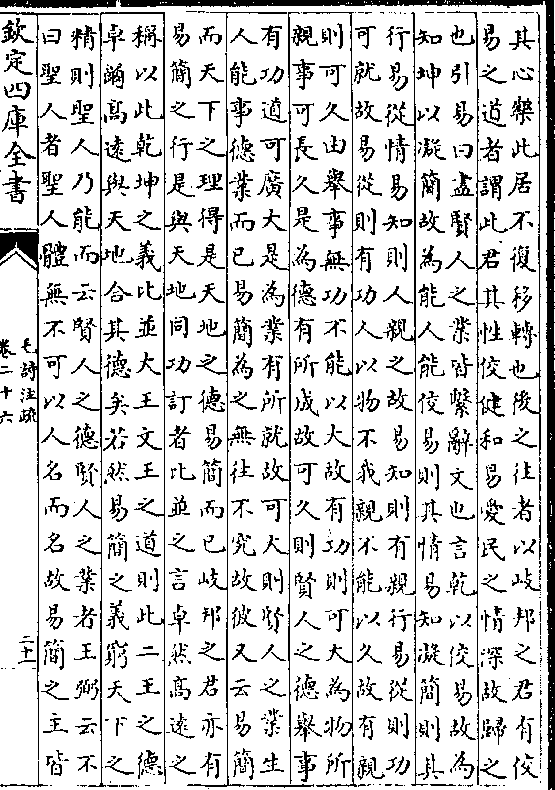 其心樂此居不復移轉也後之往者以岐邦之君有佼
易之道者謂此君其性佼健和易愛民之情深故歸之
也引易曰盡賢人之業皆繫辭文也言乾以佼易故為
知坤以凝簡故為能人能佼易則其情易知凝簡則其
行易從情易知則人親之故易知則有親行易從則功
可就故易從則有功人以物不我親不能以久故有親
則可久由舉事無功不能以大故有功則可大為物所
親事可長久是為德有所成故可久則賢人之德舉事
有功道可廣大是為業有所就故可大則賢人之業生
人能事德業而已易簡為之無往不究故彼又云易簡
而天下之理得是天地之德易簡而已岐邦之君亦有
易簡之行是與天地同功訂者比並之言卓然高遠之
稱以此乾坤之義比並大王文王之道則此二王之德
卓爾高遠與天地合其德矣若然易簡之義窮天下之
精則聖人乃能而云賢人之德賢人之業者王弼云不
曰聖人者聖人體無不可以人名而名故易簡之主皆
欽定四庫全書
毛詩注疏
卷二十六
二十一